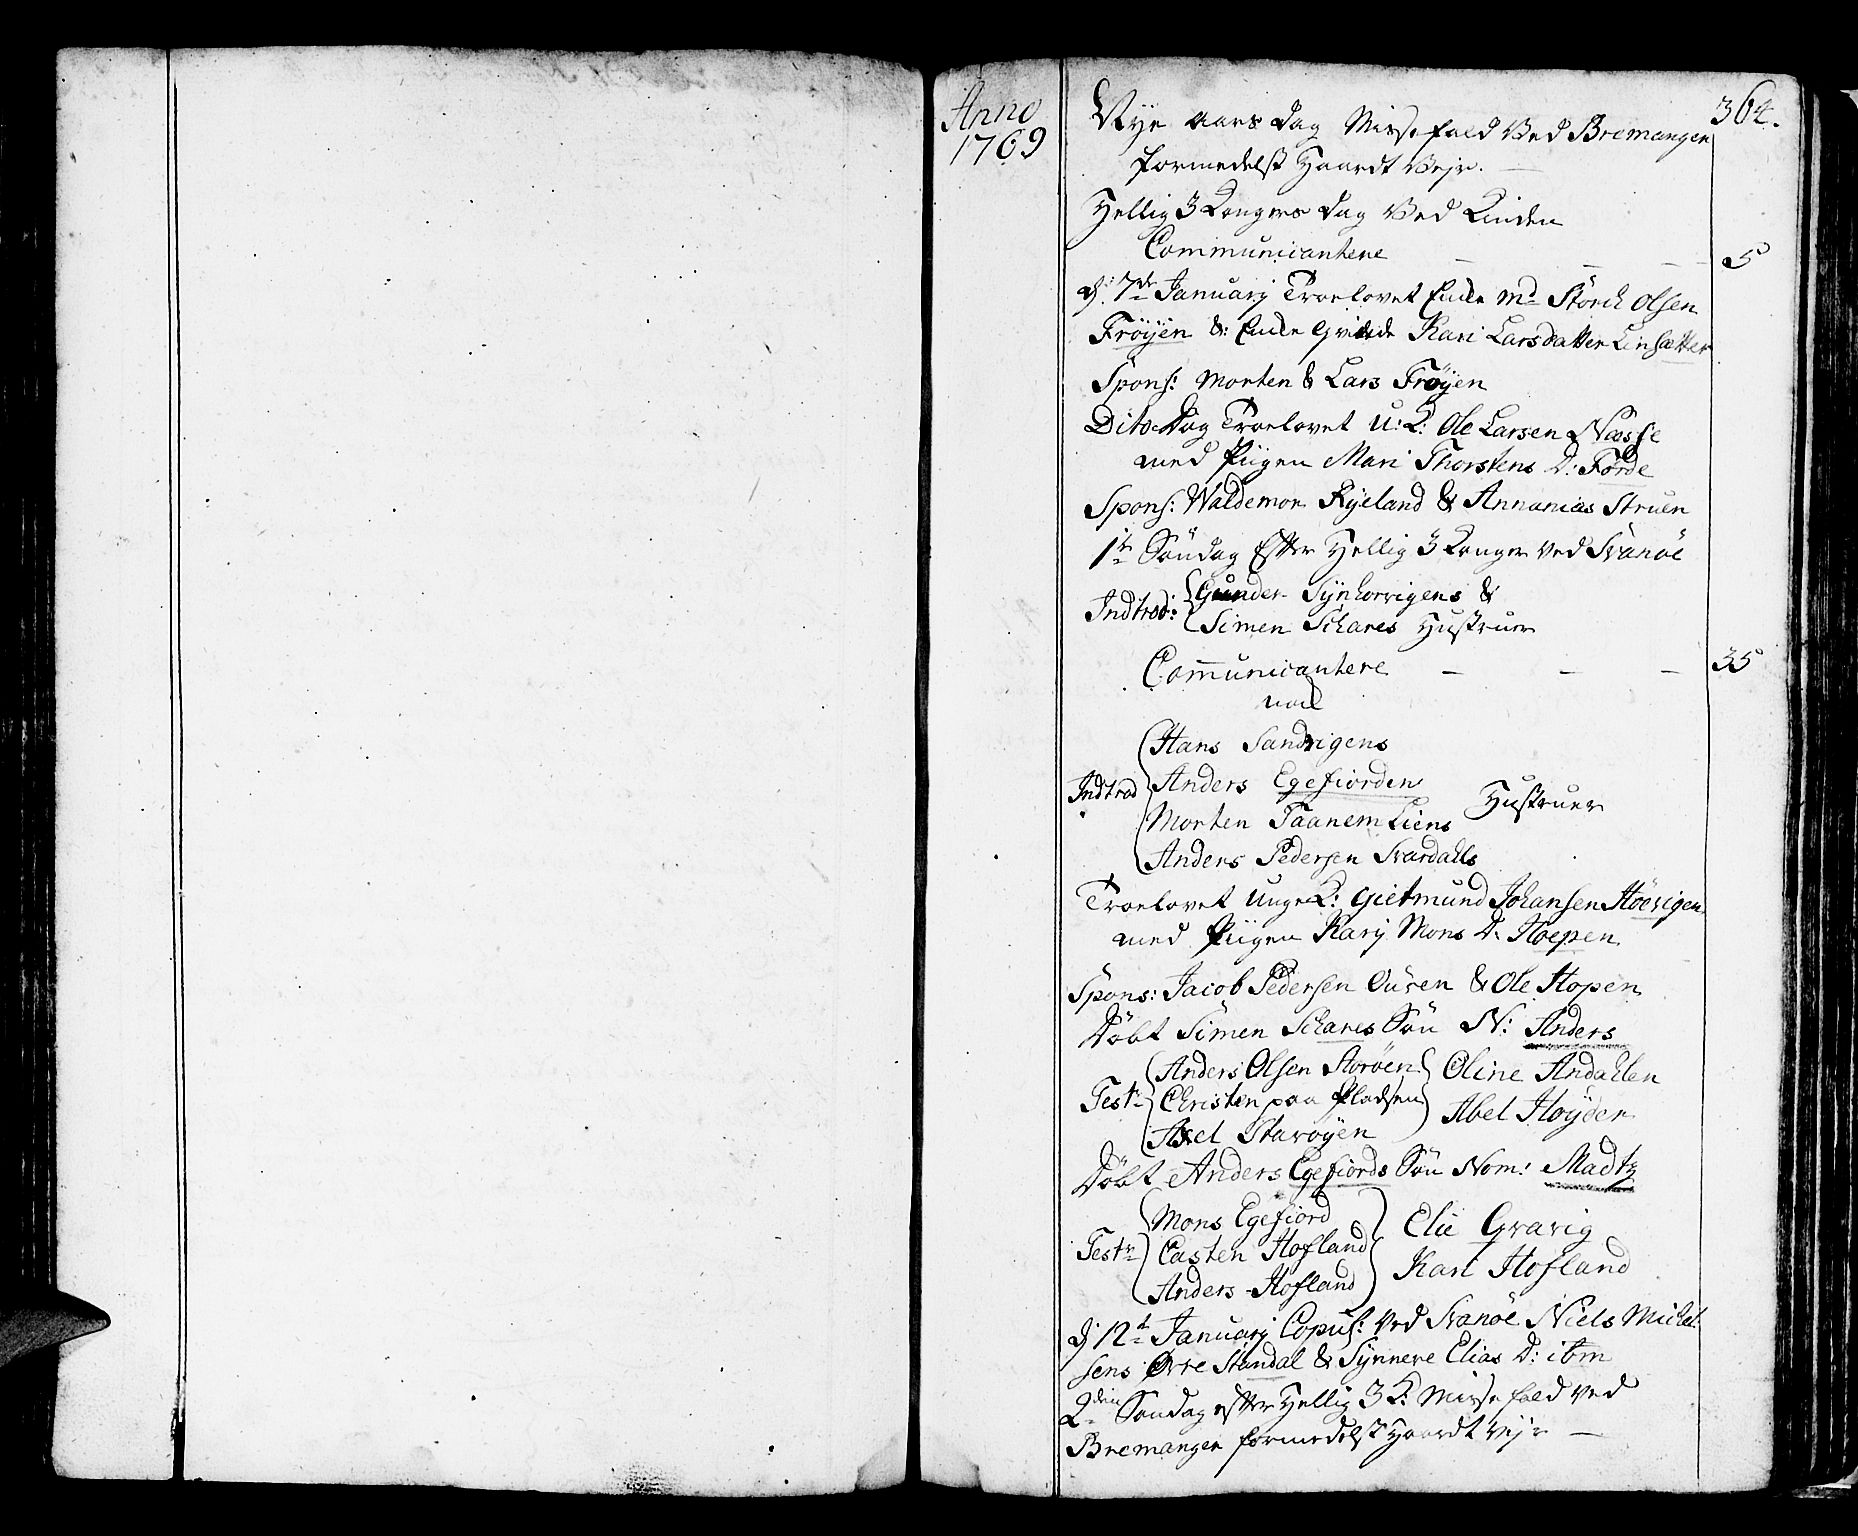 Anno
1769
364.
Nye aars dag Misefald Ved Bremangen
formedelst Haardt Vejr.
Hellig 3 Kongers dag Ved Kinden
Communicantere - - - 5
d: 7de January Troelovet Enke md Störck Olsen
Fröyen &: Enke Qvinde Kari Larsdatter Linsætter
Spons: Morten & Lars Fröyen
Dito Dag Troelovet U: K: Ole Larsen Næsse
med Piigen Mari Thorstens D: Förde
Spons: Waldemor Ryeland & Annanias Struen
1te Söndag Efter Hellig 3 Konger ved Svanöe
Indtrod: Gunder Synhorvigens &
Simen Schares Hustruer
Communicantere - - - 35
Hans Sandvigens
Indtrod Anders Egefiorden Hustruer
Morten Taanemliens
Anders Pedersen Svardahls
Troelovet Unge K: Gietmund Johansen Höevigen
med Piigen Karj Mons D: Hoepen
Spons: Jacob Pedersen Ouren & Ole Hopen
Döbt Simen Schares Sön N: Anders
Anders Olsen Storöen Oline Andahlen
Test: Christen paa Pladsen Abel Höyder
Axel Staröyen
Döbt Anders Egefiords Sön Nom: Madtz
Mons Egefiord Elie Gravig
Test: Casten Hofland
Anders Hofland Kari Hofland
d: 12te January Copul: Ved Svanöe Niels Michel-
sens Ørre Standal & Synneve Elias D: ibm
2den Söndag efter Hellig 3 K: Misefald Ved
Bremangen formedelst Haardt Vejr -